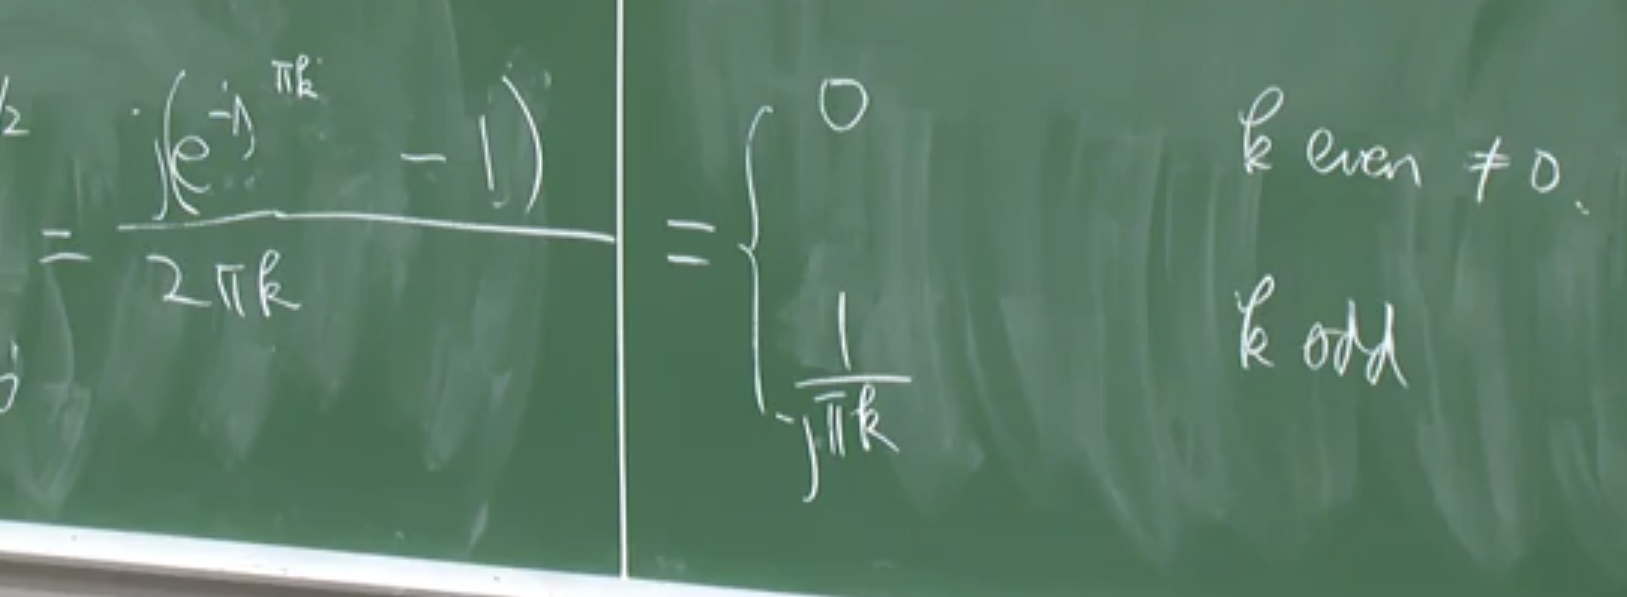 /2 = j(e^{-jπk} - 1) / 2πk = { 0 k even ≠ 0.
1 / jπk k odd